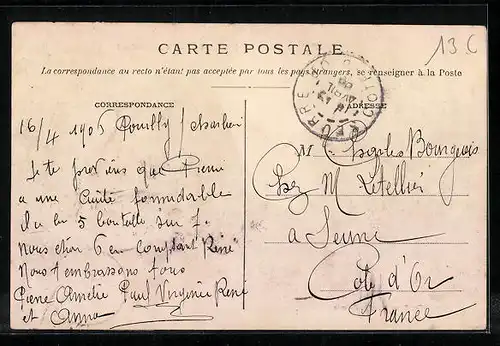 CARTE POSTALE
La correspondance au recto n'étant pas acceptée par tous les pays étrangers, se renseigner à la Poste
13 C
CORRESPONDANCE
ADRESSE
COTE D'OR
16/4 1905 Pouilly / Charlieu
Je te préviens que Pierre
a une Cuite formidable
il a bu 5 bouteille sur 7.
Nous étion 6 en comptant René
Nous t'embrassons tous
Pierre Amelie Paul Virginie René
et Anna
M Charles Bourgeois
Chez M Letellier
a Seurre
Cote d'Or
France